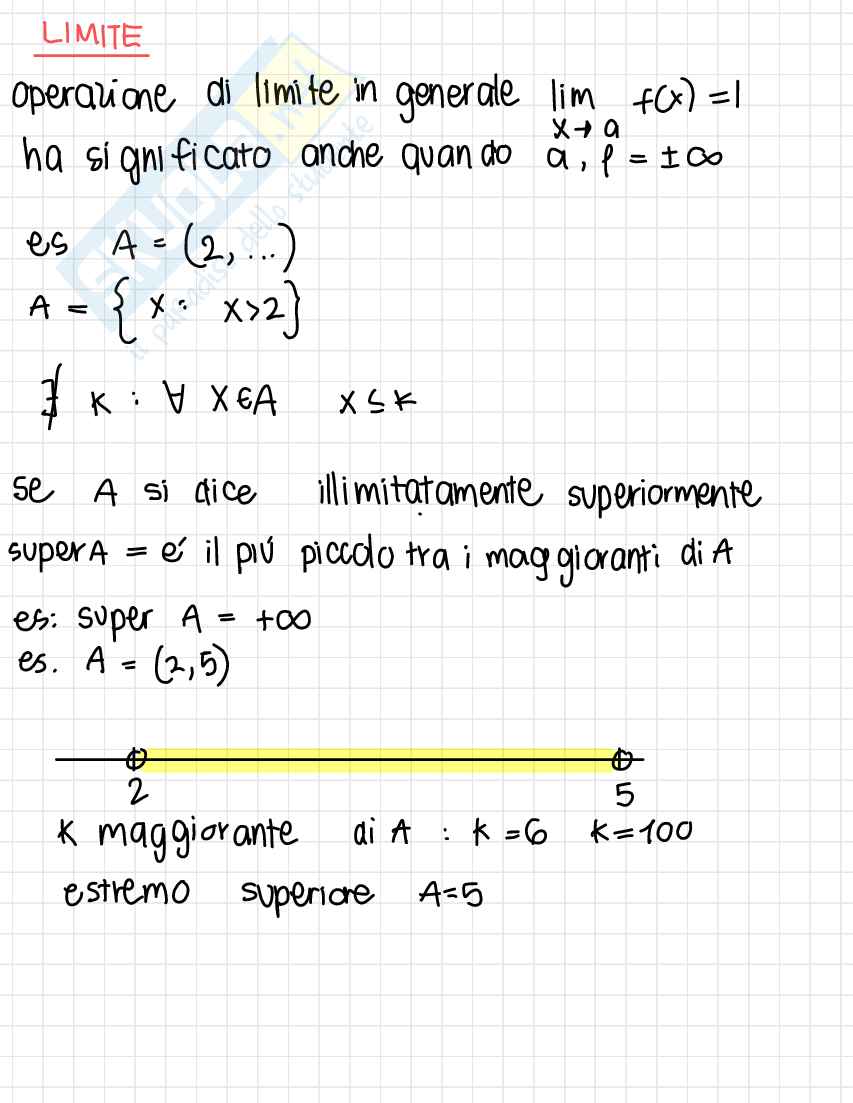 LIMITE
operazione di limite in generale lim f(x) = l
x→a
ha significato anche quando a, l = ±∞
es A = (2, ...)
A = { x : x>2}
∄ k : ∀ x ∈ A x ≤ k
se A si dice illimitatamente superiormente
super A = é il piú piccolo tra i maggioranti di A
es: super A = +∞
es. A = (2,5)
2 5
K maggiorante di A : k = 6 k=100
estremo superiore A=5
SKUOLA.net
il paradiso dello studente